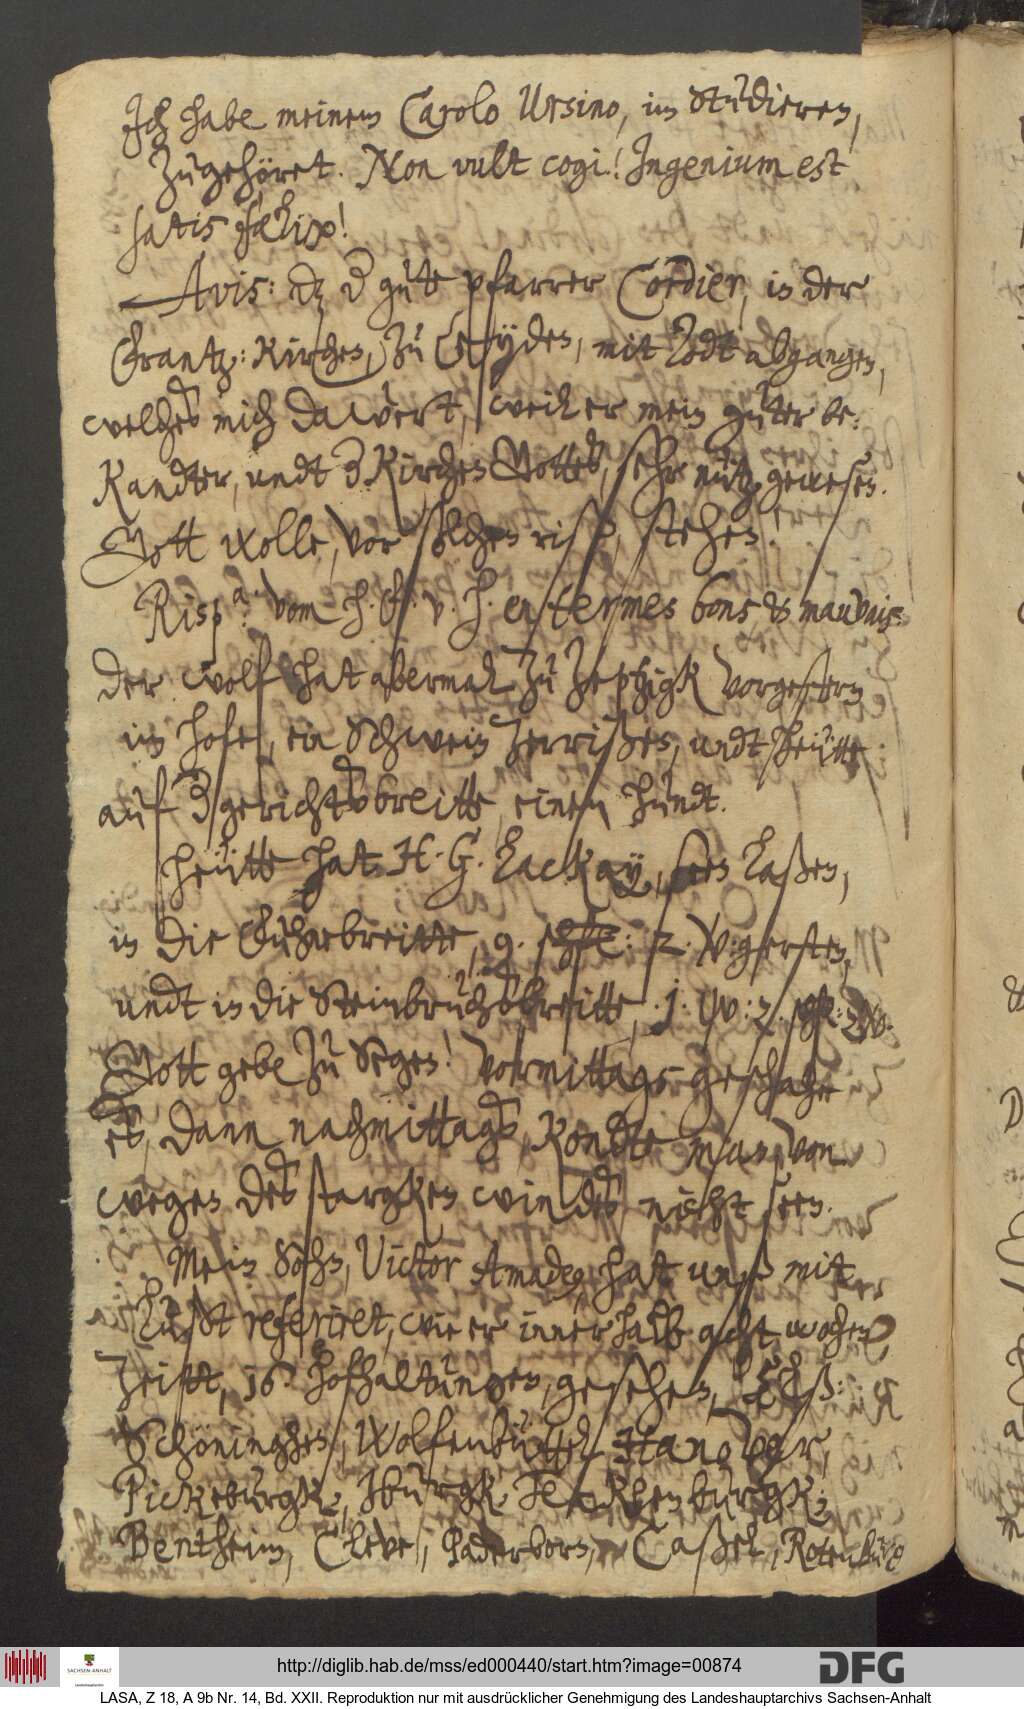 Ich habe meinem Carolo Ursino, im Studieren,
zugehöret. Non vult cogi! Ingenium est
satis fælix!
Avis: dz d gute pfarrer Cordier, in der
Frantz: Kirchen, zu Leyden, mit Todt abgangen,
welches mich dawert, weil er mein guter be:
kandter, undt d. Kirchen Gottes, sehr nütz gewesen.
Gott wolle, vor solchen riß, stehen.
Risp.a: vom H. G. v. H. en termes bons & mauvais.
Der wolf hat abermal zu Zeptzigk vorgestern
im hofe, ein Schwein zerrißen, undt heütte
auf d gerichtsbreitte einen hundt.
Heütte hat H. G. Lackay, seen laßen,
in die Fuhrebreitte, 9. schfl: 2. V: gersten,
undt in die Steinbruchsbreitte, 1. W: 2. schfl: W.
Gott gebe zu Segen! Vormittags geschahe
es, dann nachmittags, kondte man von
wegen des starcken windes nicht seen.
Mein Sohn, Victor Amadeus, hat unß mit
lust referiret, wie er innerhalb acht wochen
Zeitt, 16. Hofhaltungen, gesehen, Alß:
Schöninghen, Wolfenbüttel, Hanover,
Pickeburgk, Iburgk, Tecklenburgk,
Bentheim, Cleve, Paderborn, Caßel, Rotenburg
http://diglib.hab.de/mss/ed000440/start.htm?image=00874
DFG
SACHSEN-ANHALT
Landeshauptarchiv
LASA, Z 18, A 9b Nr. 14, Bd. XXII. Reproduktion nur mit ausdrücklicher Genehmigung des Landeshauptarchivs Sachsen-Anhalt